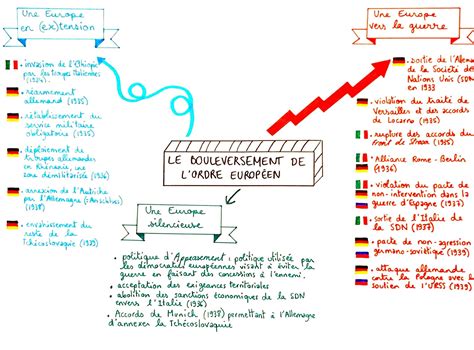 Une Europe
en (ex)tension
• invasion de l'Ethiopie
par les troupes italiennes
• réarmement
allemand (1935)
• rétablissement du
service militaire
obligatoire (1935)
• déploiement de
troupes allemandes
en Rhénanie, une
zone démilitarisée (1936)
• annexion de l'Autriche
par l'Allemagne (Anschluss)
(1938)
• envahissement du
reste de la
Tchécoslovaquie (1939)
LE BOULEVERSEMENT DE
L'ORDRE EUROPÉEN
Une Europe
silencieuse
• politique d'Appeasement : politique utilisée par
les démocraties européennes visant à éviter la
guerre en faisant des concessions à l'ennemi.
• acceptation des exigeances territoriales
• abolition des sanctions économiques de la SDN
envers l'Italie (1936)
• Accords de Munich (1938) permettant à l'Allemagne
d'annexer la Tchécoslovaquie
Une Europe
vers la guerre
• sortie de l'Allem
de la Société des
Nations Unis (SDN
en 1933
• violation du traité de
Versailles et des accords
de Locarno (1936)
• rupture des accords du
Front de Stresa (1935)
• "Alliance Rome-Berlin
(1936)
• violation du pacte de
non-intervention dans la
guerre d'Espagne (1937)
• sortie de l'Italie de
la SDN (1937)
• pacte de non-agression
germano-soviétique (1939)
• attaque allemande
contre la Pologne avec le
soutien de l'URSS (1939)